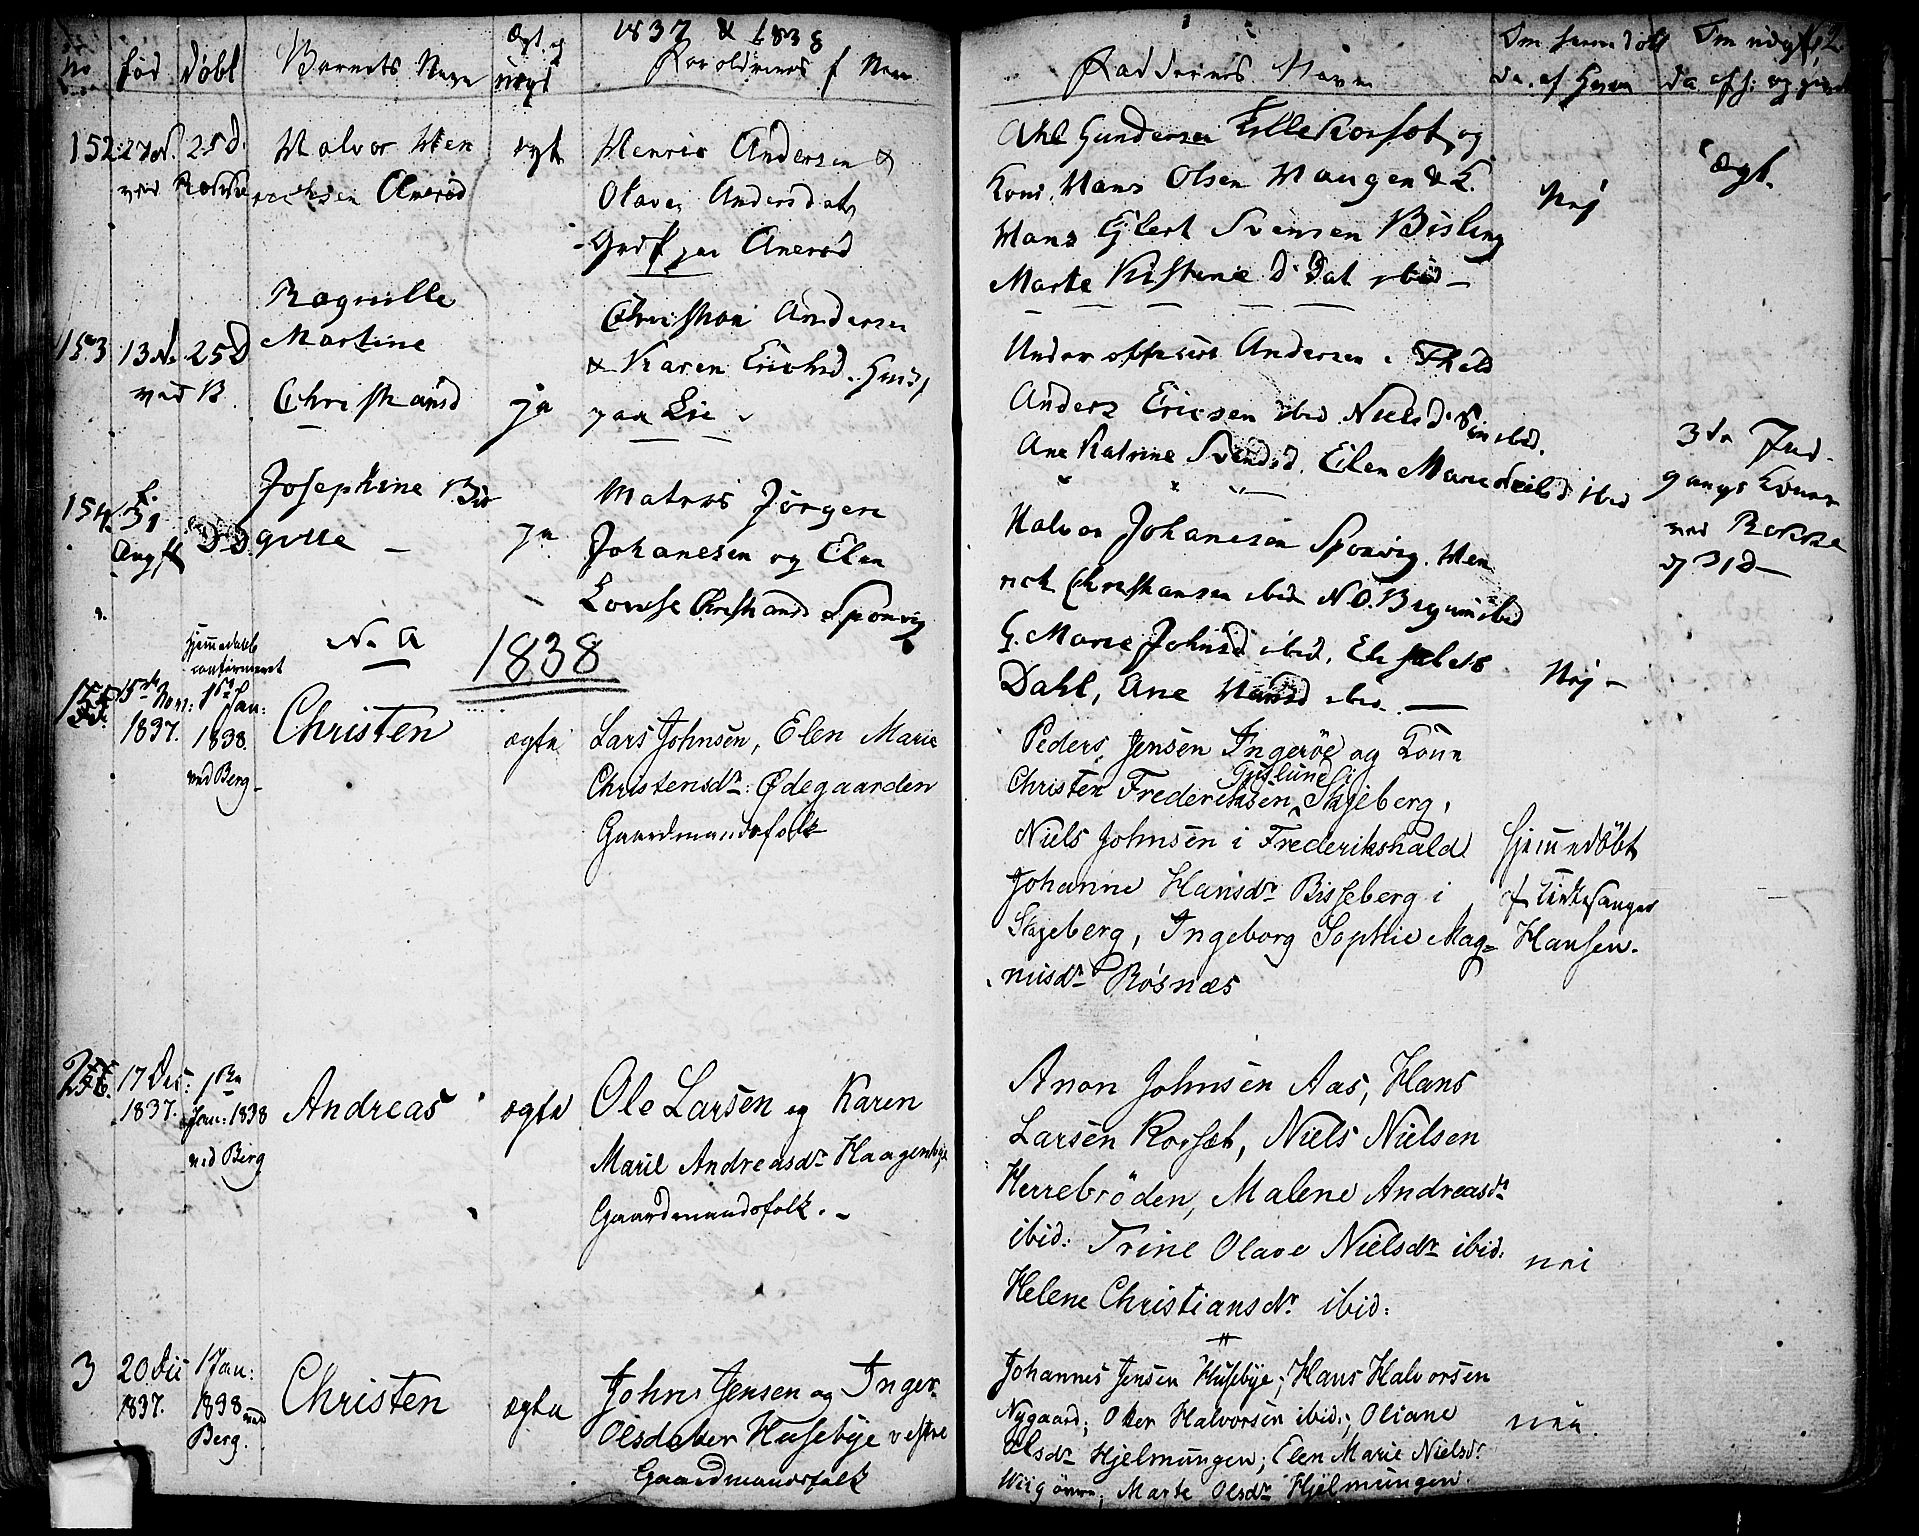 1837 & 1838
No
fød
døbt
Barnets Navn
Ægt. og
uægt
Forældrenes f Navn
Faddernes Navn
Om hiemdøbt
da. af hvem
152
27 d.
25 D.
ved Rokke
Halvor Hen
richsen Anerød
egt
Henric Andersen &
Olava Andersdat
Grdf paa Anerød
Gundersen Lille Korset og
Kone, Hans Olsen Haugen & K.
Hans Eylert Svensen Bisling
Marte Kistine D. Dat ibid -
Nej
Ægt.
153
13 N.
25 D
ved B.
Ragnille
Martine
Christiansd
ja
Christian Andersen
& Karen Erichsd. Grdf
paa Lie
Underofficier Andersen i Fhald
Anders Ericsen ibid Niels D. ibid.
Ane Katrine Svendsd. Elen Marie Neilsd ibid
154
31
Augst
Josephine Bir
gitte -
ja
Matros Jörgen
Johanesen og Elen
Lovise Christiansd Sponvig
Halvor Johanesen Sponvig. Hen
rich Christiansen ibid N. O. Bryun ibid
G. Marie Johnsd ibid, Elisabet
Dahl, Ane Hansd ibid. -
Nej -
3 de Ind-
gangs Kone
ved Rokke
d 31 D -
No a
1838
hjemmedøbt
confirmeret
15de Nov:
1837.
1ste Jan:
1838.
ved Berg -
Christen
ægte
Lars Johnsen, Elen Marie
Christensdr: Ødegaarden
Gaardmandsfolk
Peders Jensen Ingeröe og Kone
Christen Frederiksen Gudslund i Skjeberg,
Niels Johnsen i Frederikshald
Johanne Hansdr Bisseberg i
Skjeberg, Ingeborg Sophie Mag=
nusdr Rösnæs
hjemmedöbt
af Kirkesanger
Hansen.
17 Dec:
1837.
1ste
Jan: 1838
ved Berg
Andreas
ægte
Ole Larsen og Karen
Marie Andreasdr Haagenbye
Gaardmandsfolk. -
Anon Johnsen Aas, Hans
Larsen Korset, Niels Nielsen
Herrebröden, Malene Andreasdr
ibid: Trine Olave Nielsdr ibid:
Helene Christiansdr ibid:
nei
3
20 Dec
1837.
1 Jan:
1838 ved
Berg.
Christen
ægte
Johns Jensen og Inger
Olsdatter Husebye vestre
Gaardmandsfolk
Johannes Jensen Husebye; Hans Halvorsen
Nygaard; Oker Halvorsen ibid:; Oliane
Olsdr Hjelmungen; Elen Marie Nielsdr
Wiig övre; Marte Olsdr Hjelmungen
nei.